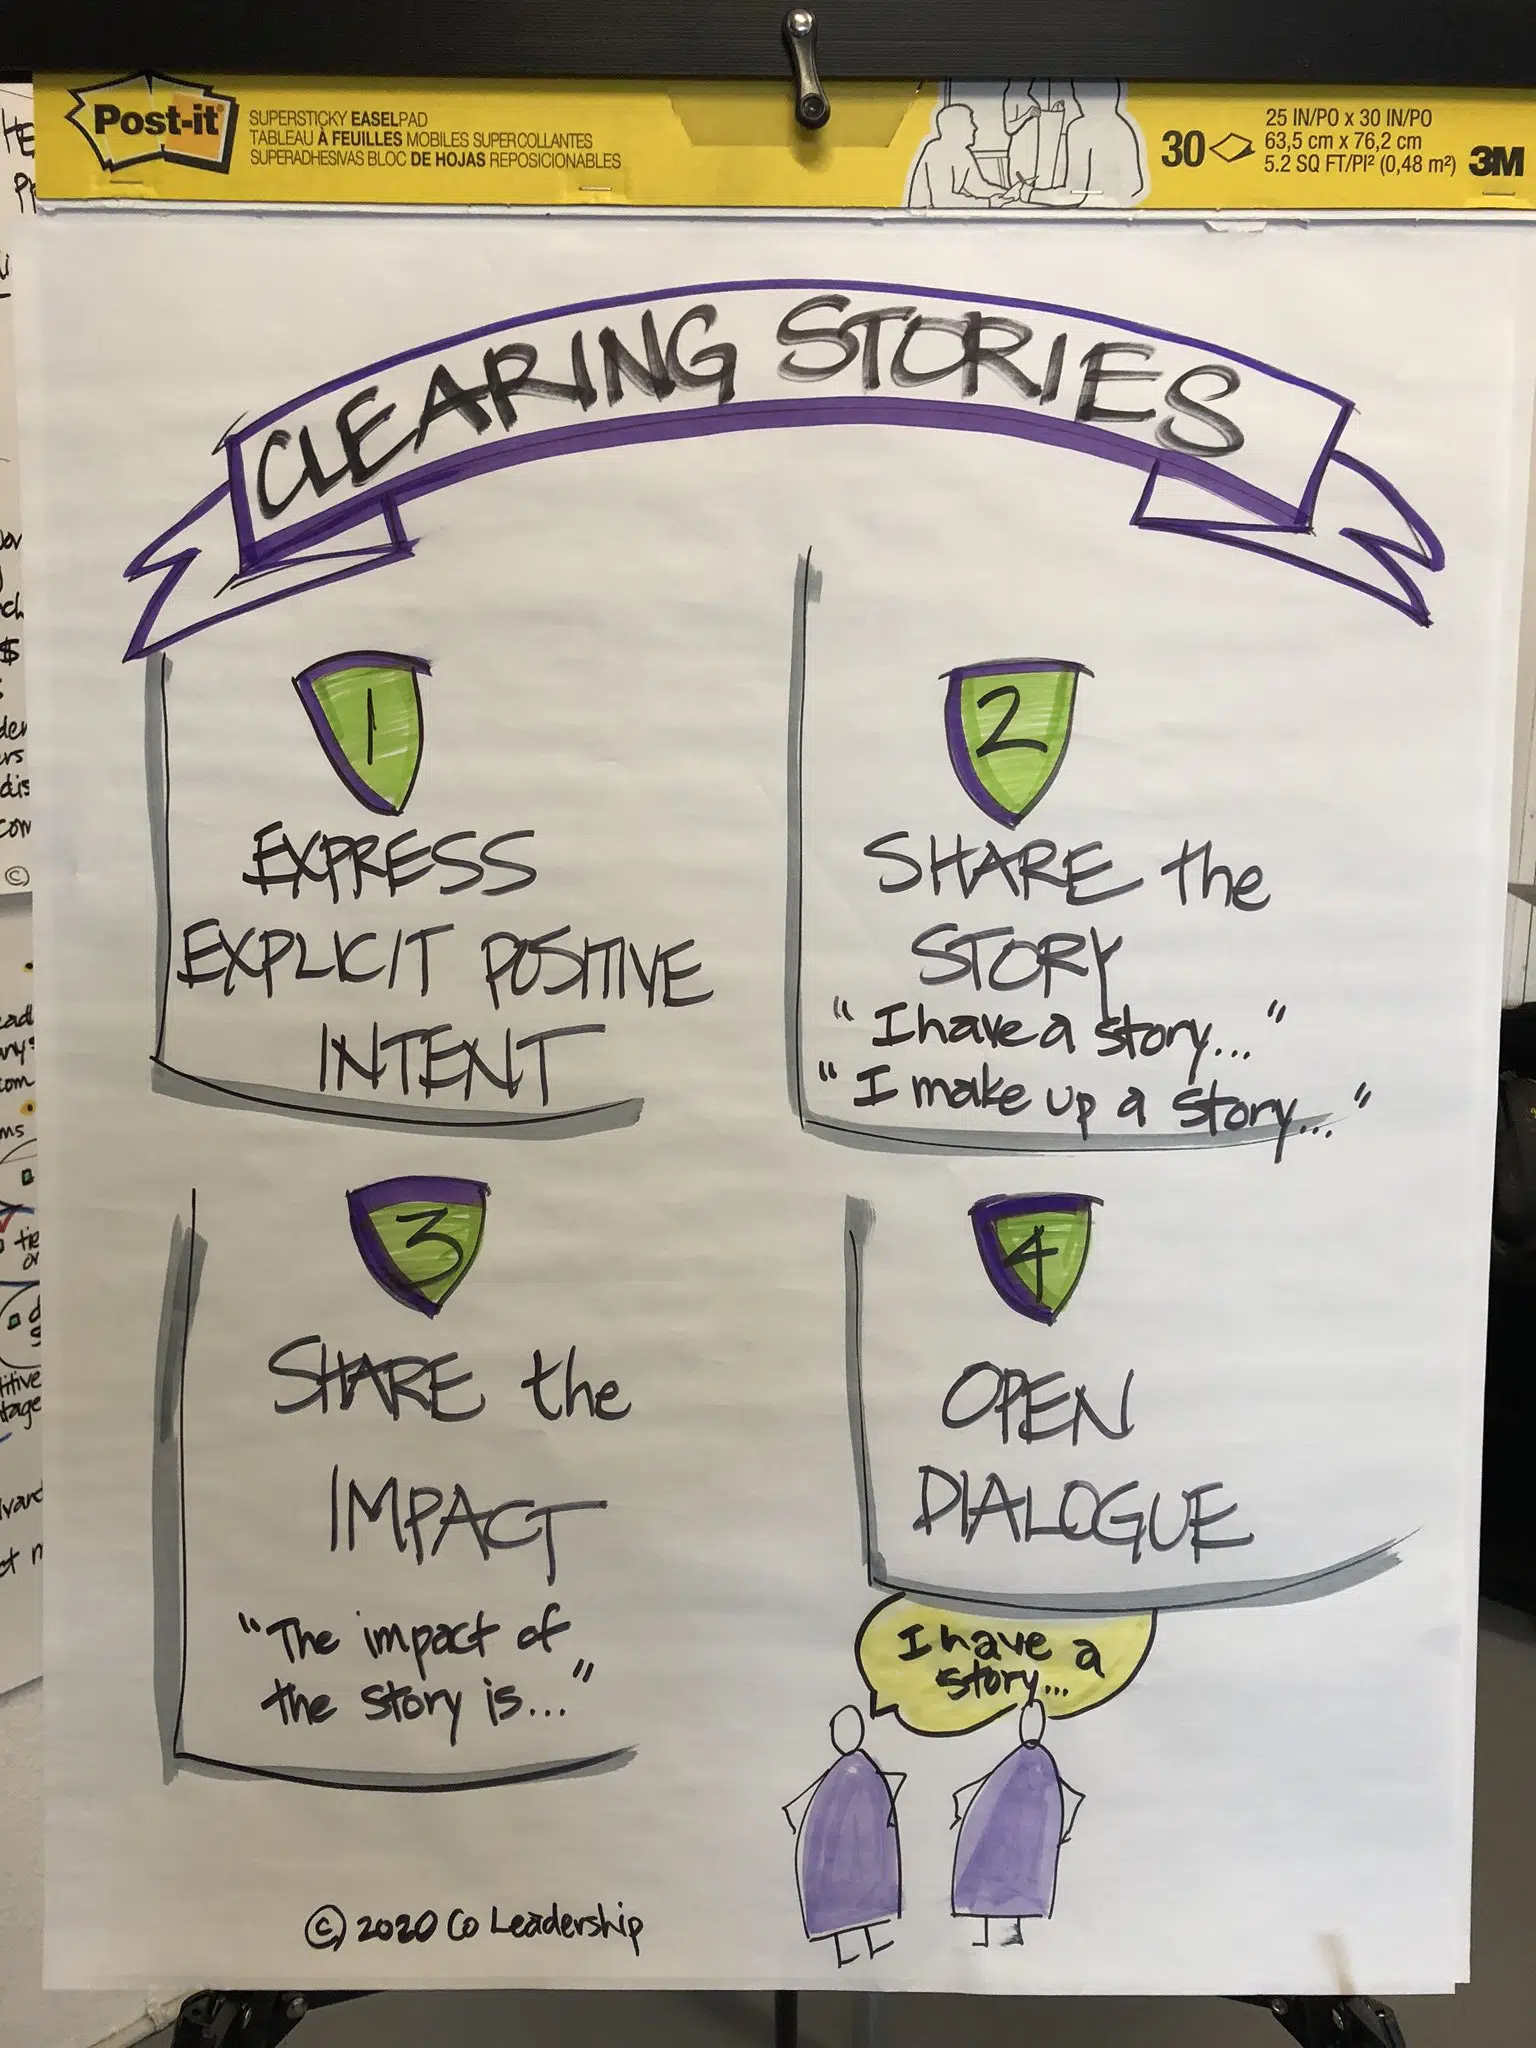 Post-it
SUPERSTICKY EASELPAD
TABLEAU À FEUILLES MOBILES SUPERCOLLANTES
SUPERADHESIVAS BLOC DE HOJAS REPOSICIONABLES
30
25 IN/PO x 30 IN/PO
63,5 cm x 76,2 cm
5.2 SQ FT/PI² (0,48 m²)
3M
CLEARING STORIES
1
EXPRESS
EXPLICIT POSITIVE
INTENT
2
SHARE the
STORY
"I have a story..."
"I make up a story..."
3
SHARE the
IMPACT
"The impact of
the story is..."
4
OPEN
DIALOGUE
I have a
story...
© 2020 Co Leadership